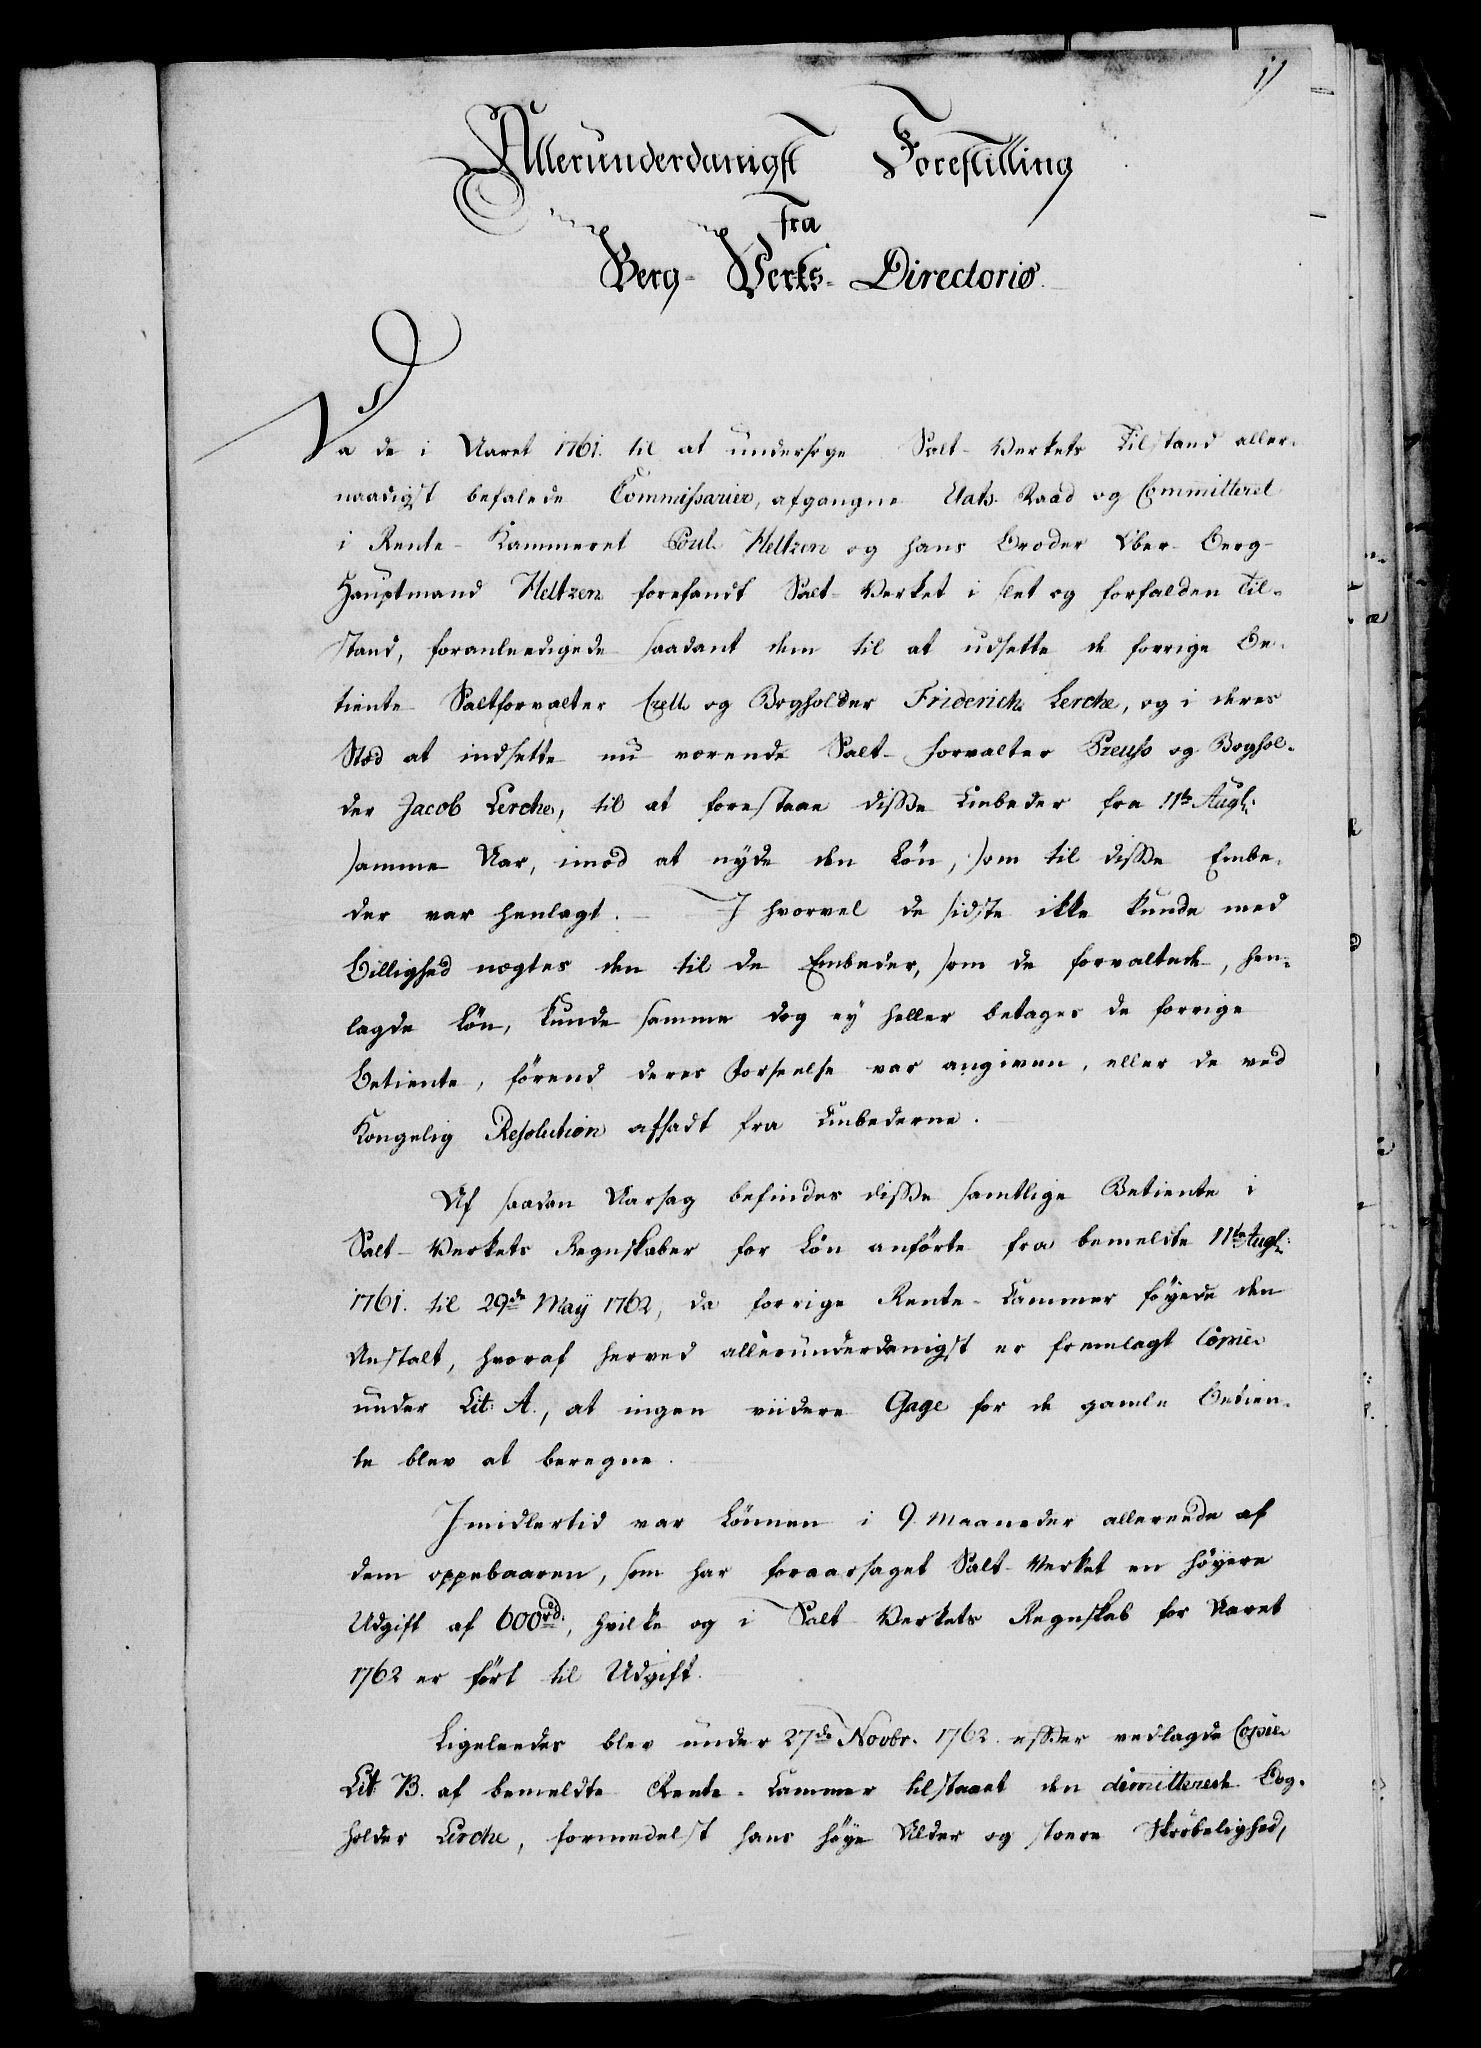 1)
Allerunderdanigst Forestilling
fra
Berg-Verks-Directorio.
Da de i Aaret 1761. til at undersøge Salt-Verkets Tilstand aller-
naadigst befalede Commissarier, afgangne Etats-Raad og Committeret
i Rente-Kammeret Poul Heltzen og hans Broder Ober-Berg-
Hauptmand Heltzen forefandt Salt-Verket i slet og forfalden Til-
stand, foranleedigede saadant dem til at udsette de forrige Be-
tiente Saltforvalter Crell og Bogholder Friderich Lerche, og i deres
Stæd at indsette nu værende Salt-forvalter Preuss og Boghol-
der Jacob Lerche, til at forestaae disse Embeder fra 11te Augt:
samme Aar, imod at nyde den Løn, som til disse Embe-
der var henlagt. - I hvorvel de sidste ikke kunde med
Billighed nægtes den til de Embeder, som de forvaltede, hen-
lagde Løn, kunde samme dog ey heller betages de forrige
Betiente, førend deres Forseelse var angiven, eller de ved
Kongelig Resolution afsadt fra Embederne.
Af saadan Aarsag befindes disse samtlige Betiente i
Salt-Verkets Regnskaber for Løn anførte fra bemeldte 11te Augt:
1761. til 29de Maÿ 1762, da forrige Rente-Cammer føyede den
Anstalt, hvoraf herved allerunderdanigst er fremlagt Copie
under Lit: A., at ingen viidere Gage for de gamle Betien-
te blev at beregne.
Imidlertid var Lønnen i 9 Maaneder allereede af
dem oppebaaren, som har foraarsaget Salt-Verket en høyere
Udgift af 600rd:, hvilke og i Salt-Verkets Regnskab for Aaret
1762 er ført til Udgift.
Ligeleedes blev under 27de Novbr. 1762. efter vedlagde Copie
Lit: B. af bemeldte Rente-Cammer tilstaaet den dimitterede Bog-
holder Lerche, formedelst hans høye Alder og store Skrøbelighed,